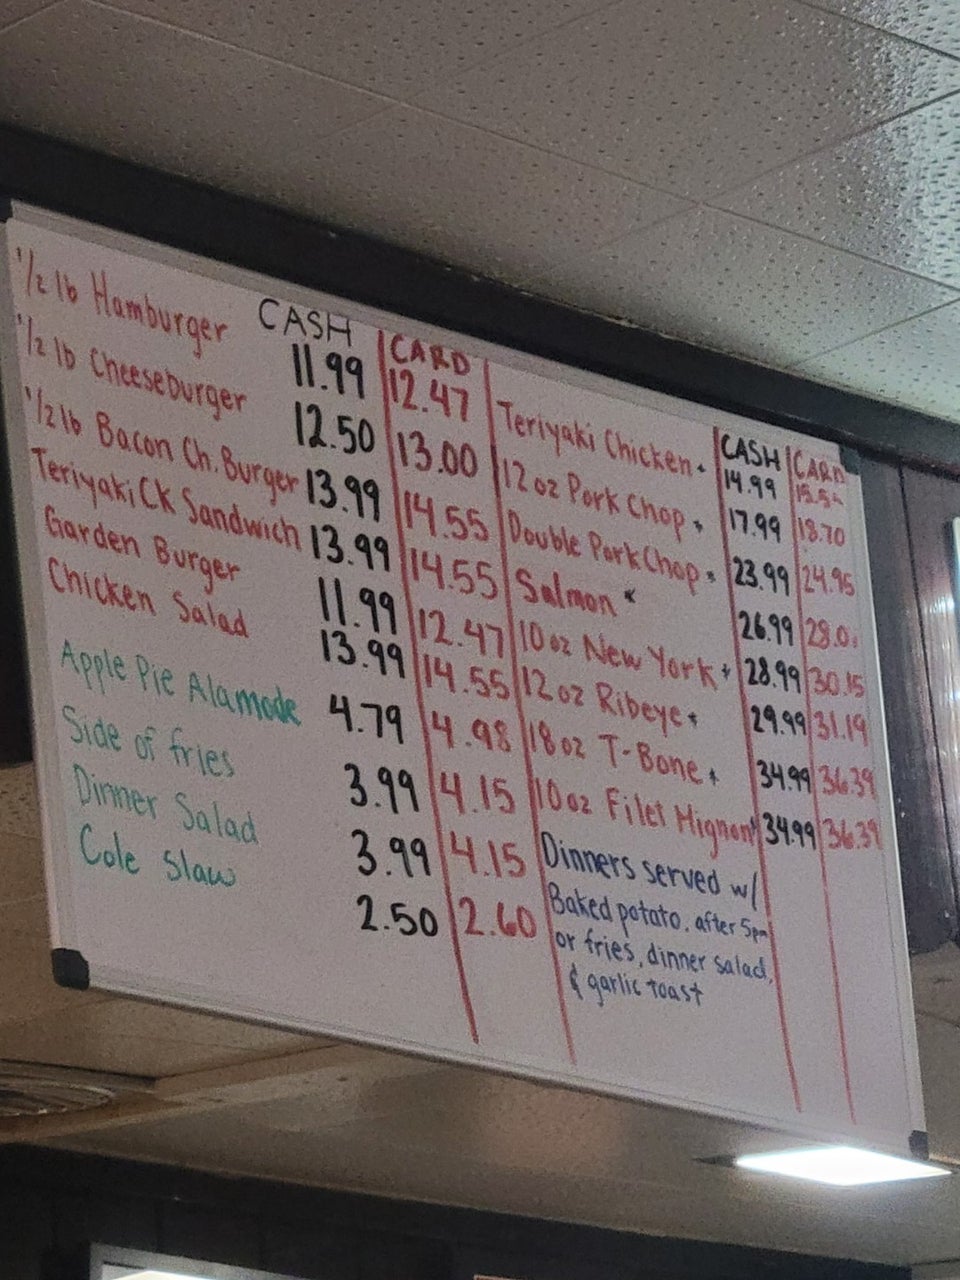 CASH CARD
1/2 lb Hamburger 11.99 12.47
1/2 lb Cheeseburger 12.50 13.00
1/2 lb Bacon Ch. Burger 13.99 14.55
Teriyaki Ck Sandwich 13.99 14.55
Garden Burger 11.99 12.47
Chicken Salad 13.99 14.55
Apple Pie Alamode 4.79 4.98
Side of fries 3.99 4.15
Dinner Salad 3.99 4.15
Cole Slaw 2.50 2.60
CASH CARD
Teriyaki Chicken * 14.99
12 oz Pork Chop * 17.99 18.70
Double Pork Chop * 23.99 24.95
Salmon * 26.99
10 oz New York * 28.99 30.15
12 oz Ribeye * 29.99 31.19
18 oz T-Bone * 34.99 36.39
10 oz Filet Mignon * 34.99 36.39
Dinners served w/
Baked potato, after 5pm
or fries, dinner salad,
& garlic toast